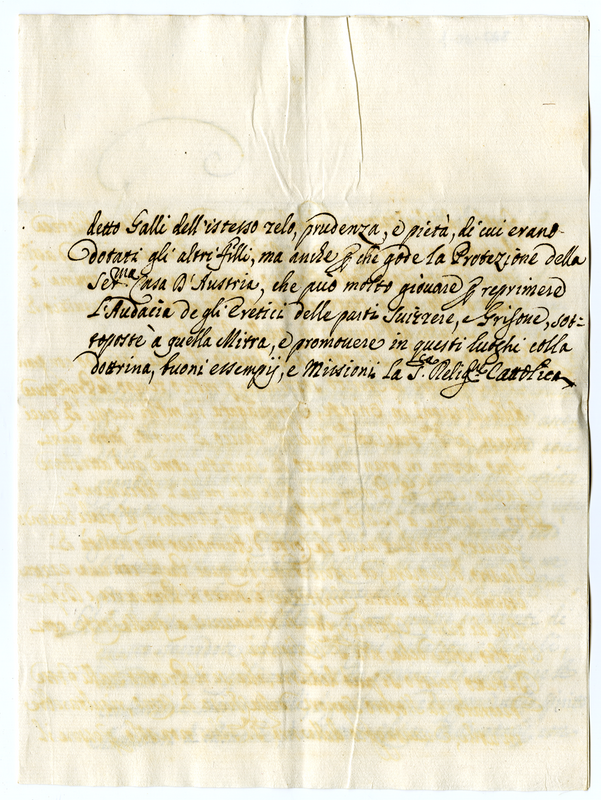 detto Galli dell'istesso zelo, prudenza, e pietà, di cui erano
dotati gli altri filli, ma anche p che gode la Protezione della
Ser.ma Casa D'Austria, che può molto giovare p reprimere
L'Audacia de gli Eretici delle parti Suizzere, e Grisone, sot=
toposte à quella Mitra, e promouere in questi luoghi colla
dottrina, buoni essempij, e Missioni la S.ta Relig.ne Cattolica